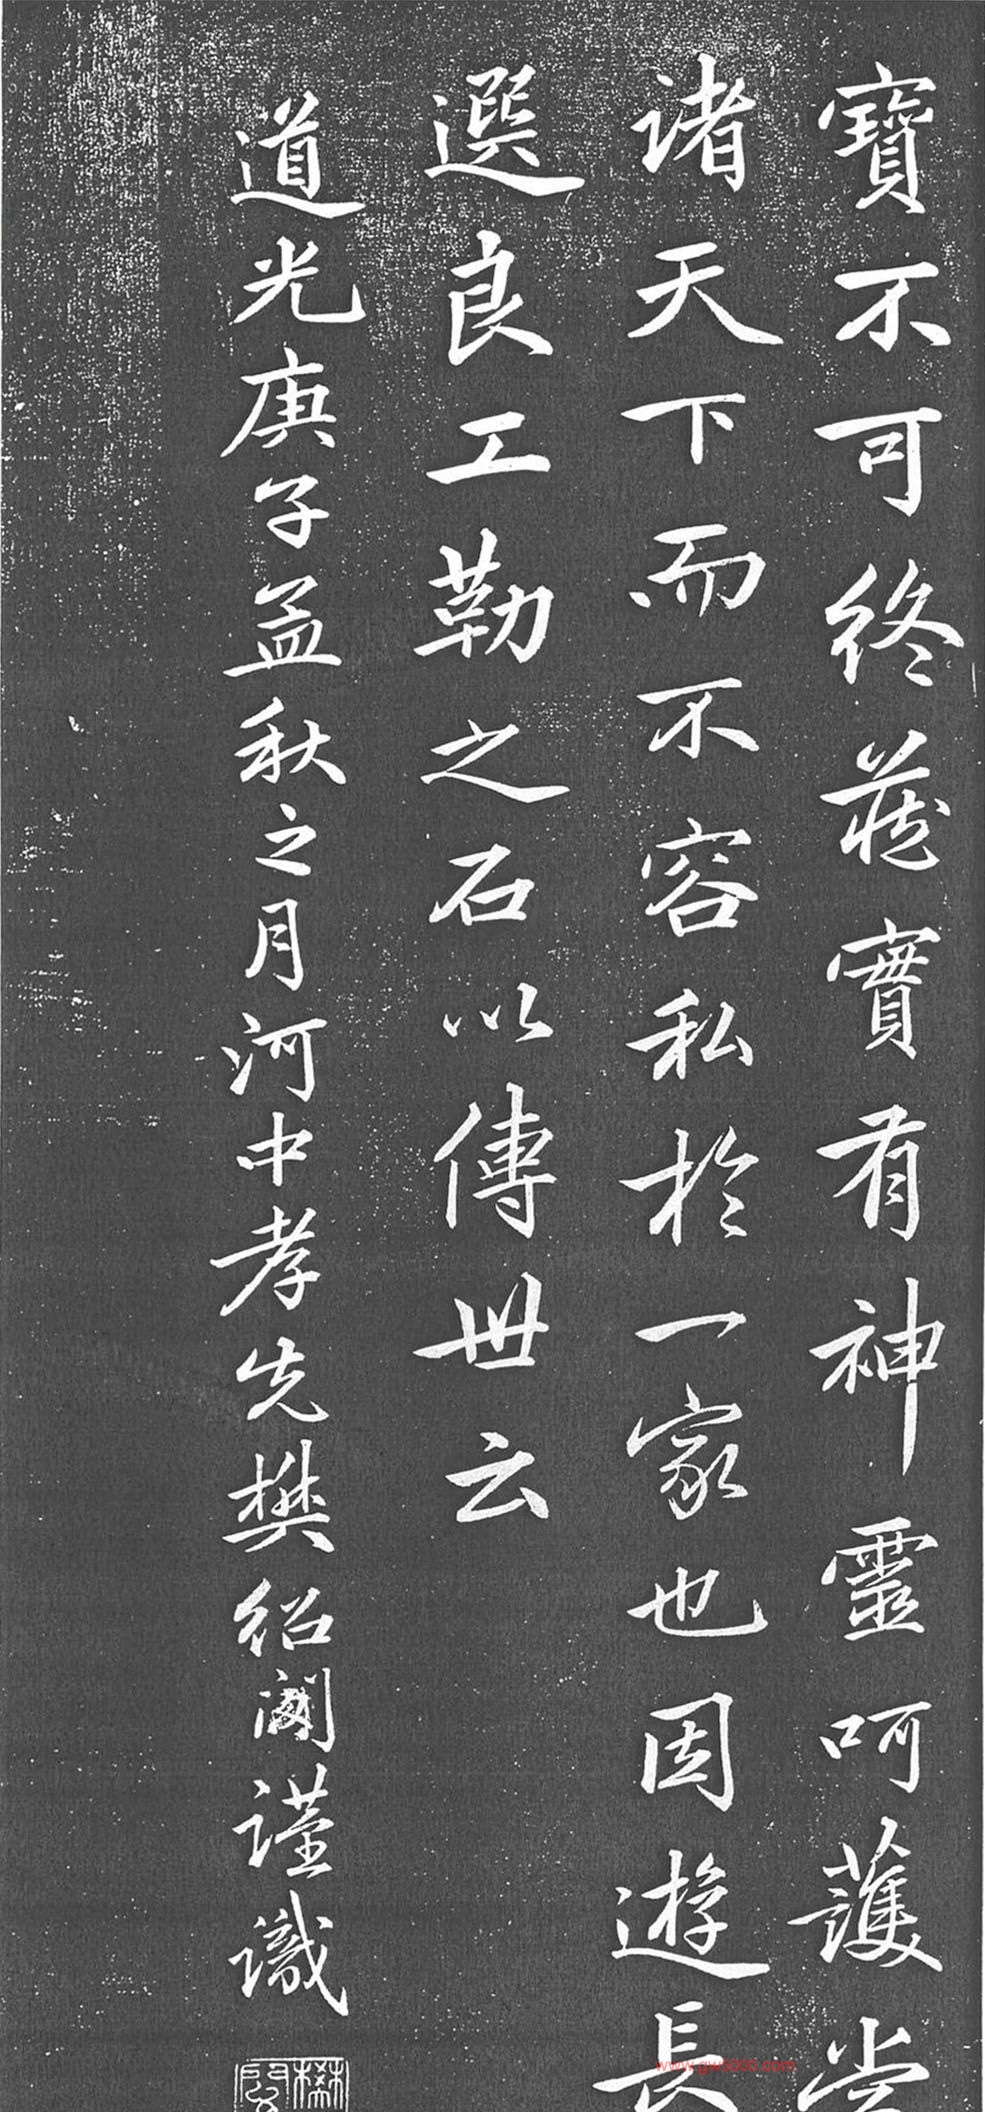 寶不可終藏實有神靈呵護
諸天下而不容私於一家也因遊長
選良工勒之石以傳世云
道光庚子孟秋之月河中孝先樊紹閿謹識
www.gw9000.com